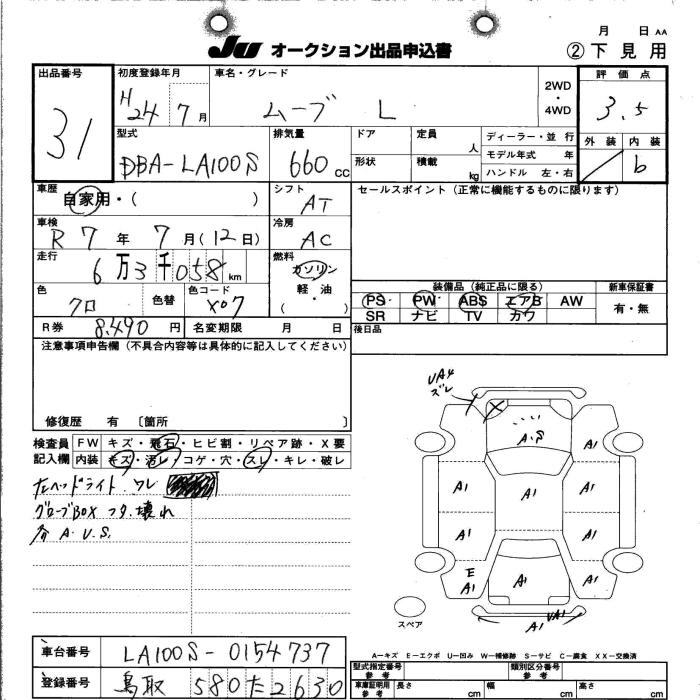 月 日 AA
JU オークション出品申込書 ②下見用
出品番号 初度登録年月 車名・グレード 2WD・4WD 評価点
31 H24 7月 ムーブ L 3.5
外装 内装
b
型式 排気量 ドア 定員 人 ディーラー・並行
DBA-LA100S 660cc 形状 積載 kg モデル年式 年
ハンドル 左・右
車歴 自家用・( ) シフト AT セールスポイント(正常に機能するものに限ります)
車検 R7年7月(12日) 冷房 AC
走行 6万3千058km 燃料 ガソリン 軽・油 ( )
色 クロ 色替 色コード X07
装備品(純正品に限る) 新車保証書
PS PW ABS エアB AW 有・無
SR ナビ TV カワ
R券 8,490円 名変期限 月 日 後日品
注意事項申告欄(不具合内容等は具体的に記入してください)
修復歴 有〔箇所 〕
検査員 FW キズ・飛石・ヒビ割・リペア跡・X要
記入欄 内装 キズ・汚レ・コゲ・穴・スレ・キレ・破レ
左ヘッドライト ワレ
グローブBOX フタ 壊れ
A.U.S.
UA4
ズレ
A.S
A1
A1 A1 A1
A1 A1
E
A1 A1 A1
UA1
A1
スペア
A-キズ E-エクボ U-凹み W-補修跡 S-サビ C-腐食 XX-交換済
車台番号 LA100S-0154737
型式指定番号 参考 類別区分番号 参考
登録番号 鳥取 580 た 2630
車庫証明用 参考 長さ cm 幅 cm 高さ cm